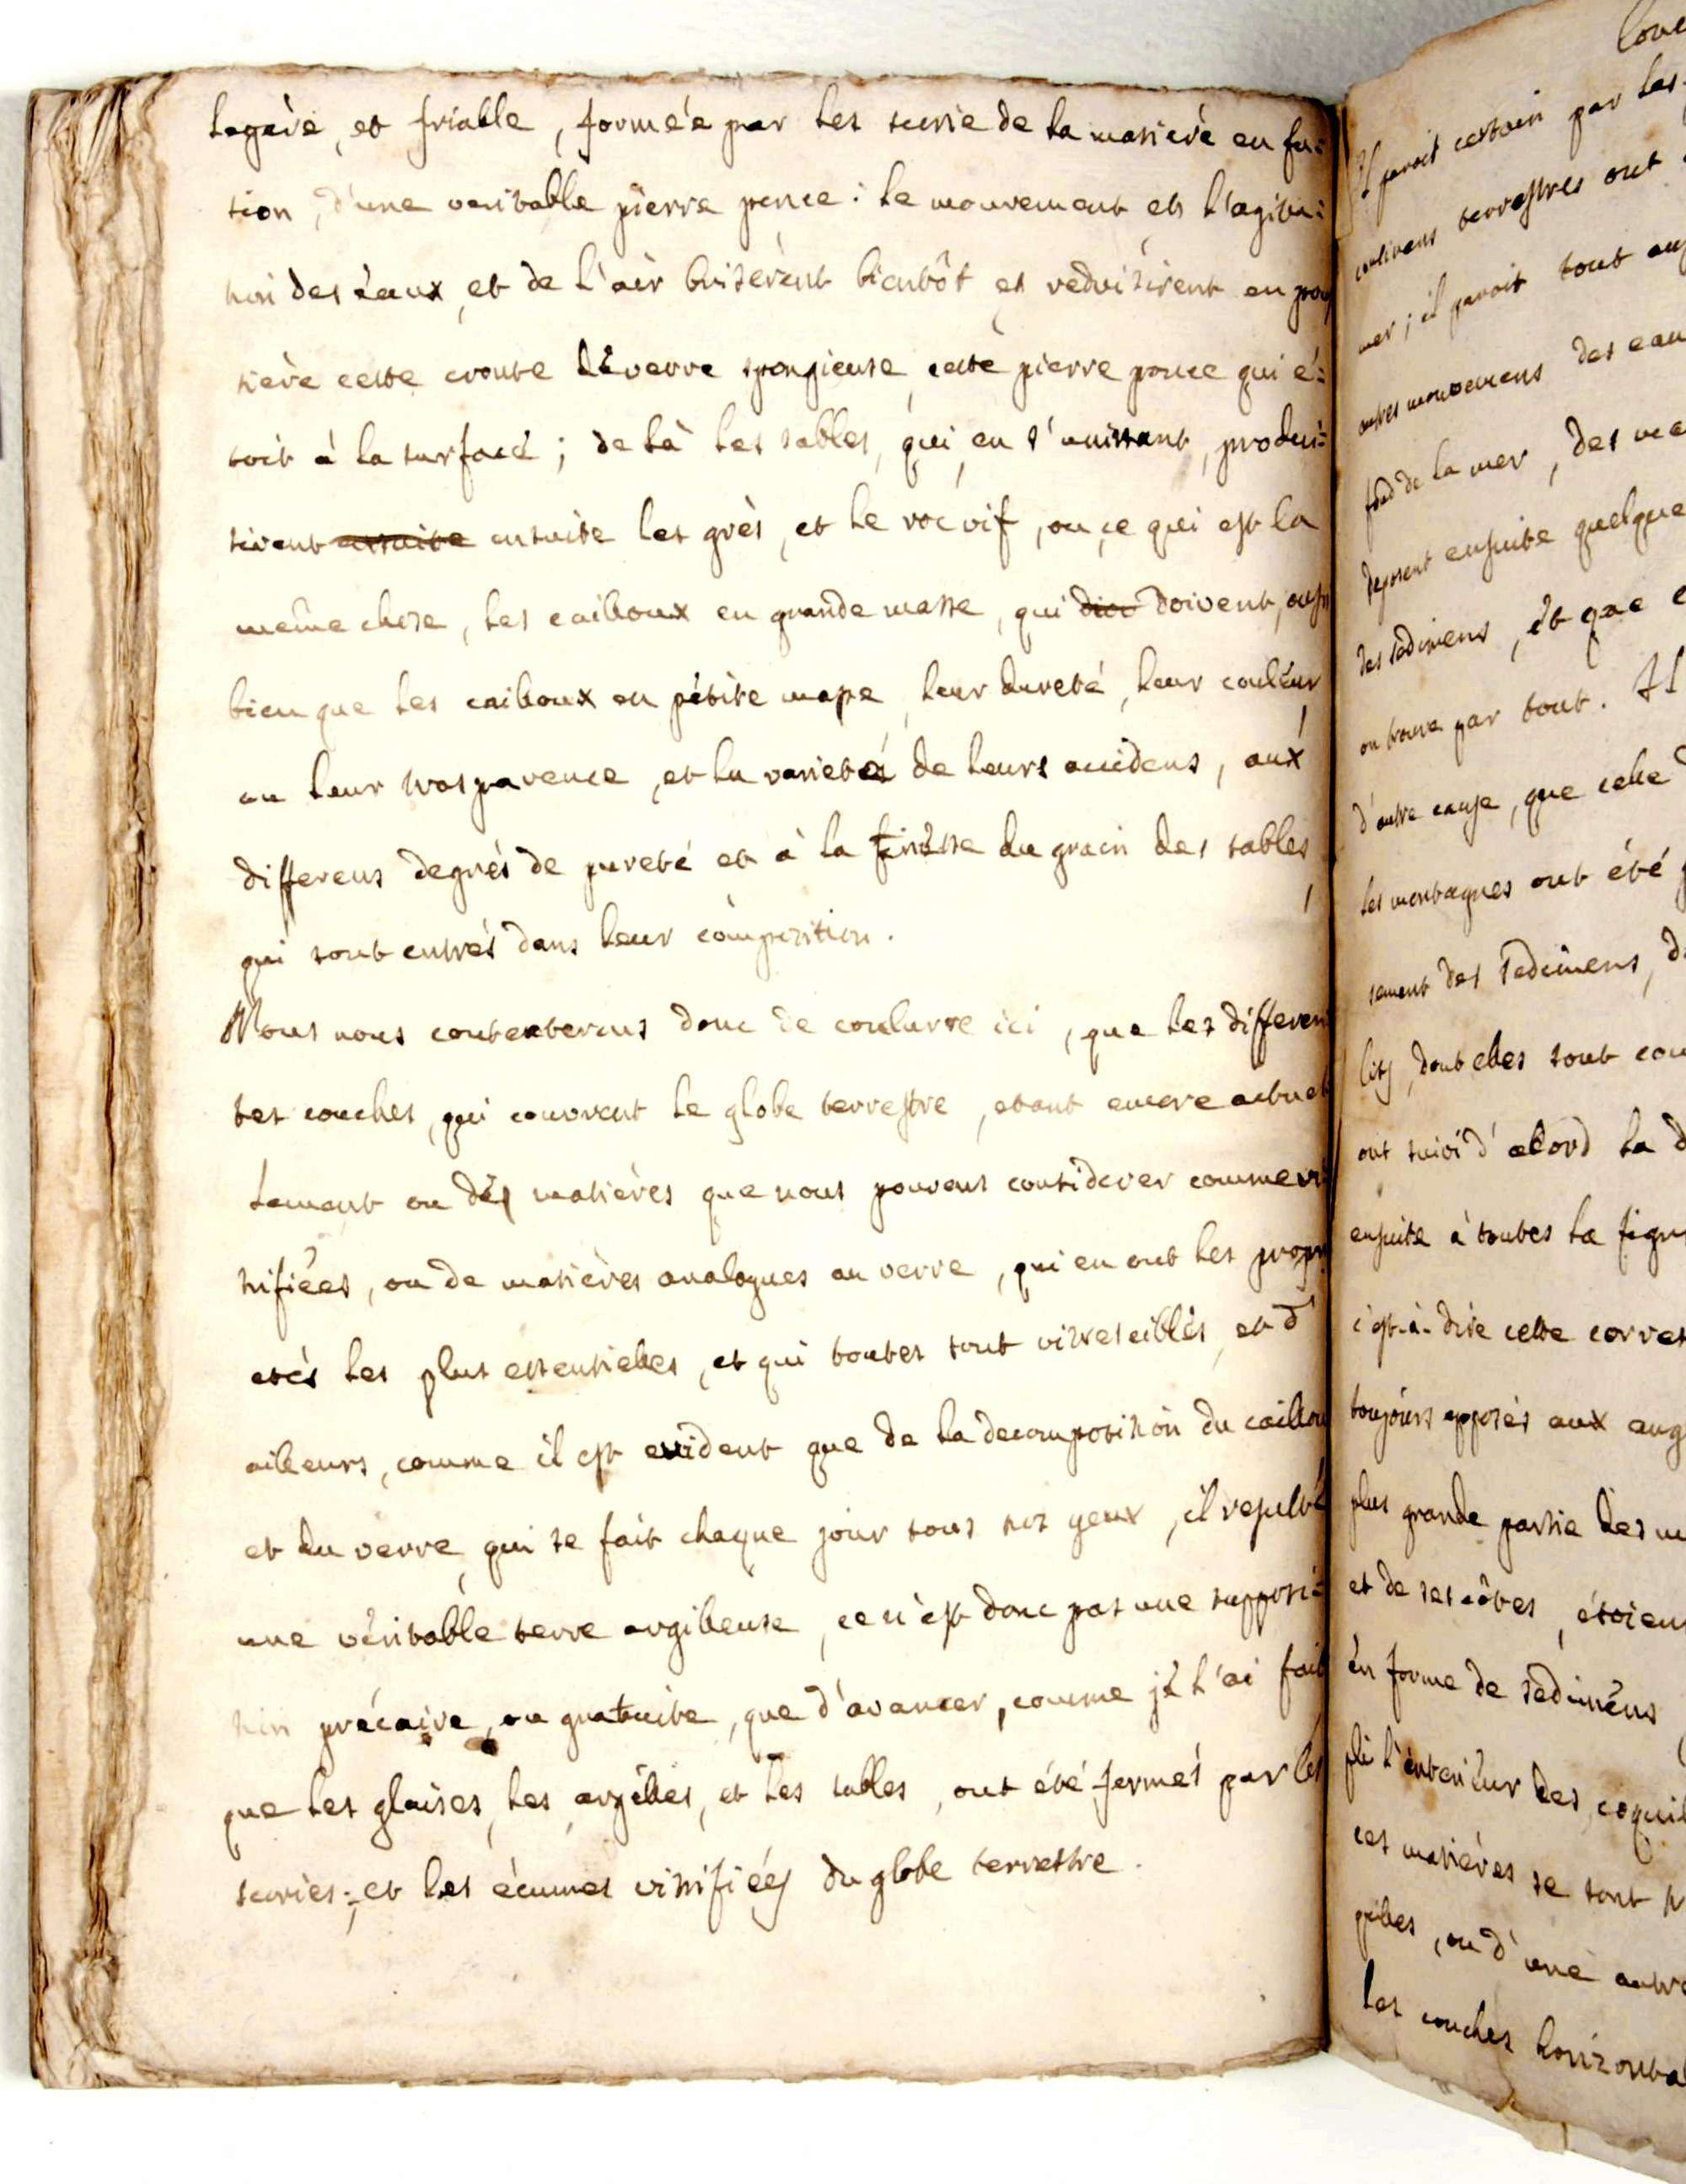 legére, et friable, formeé par les scorie de la matiere en fu=
sion, d'une veritable pierre ponce : le mouvement et l'agita=
tion des éaux, et de l'air briserent bientôt et reduisirent en pous
siere cette croute de verre spongieuse, cette pierre ponce qui é=
toit à la surface ; de là les sables, qui, en s'unissant, produi=
sirent ensuite les grès, et le roc vif, ou, ce qui est la
même chose, les cailloux en grande masse, qui doivent, aussi
bien que les cailloux en pétite masse, leur dureté, leur couleur,
ou leur trasparence, et la varieté de leurs accidens, aux
differens degrés de pureté et à la finesse du grain des sables,
qui sont entrés dans leur composition.
Nous nous contenterons donc de conclurre ici, que les differen
tes couches, qui couvrent le globe terrestre, etant encore actuel
lement ou des matières que nous pouvons considerer comme vi
trifiées, ou de matières analogues au verre, qui en ont les propri
etés les plus essentielles, et qui toutes sont vitrescibles, et d'
ailleurs, comme il est evident que de la decomposition du caillou
et du verre, qui se fait chaque jour sous nos yeux, il resulte
une véritable terre argilleuse, ce n'est donc pas une supposi=
tion précaire, ou gratuite, que d'avancer, comme je l'ai fait
que les glaises, les argilles, et les sables, ont été formés par les
scories, et les écumes vitrifiées du globe terrestre.
Il paroit certain par les
continens terrestres ont
mer ; il paroit tout aus
autres mouvemens des eau
fond de la mer, des
deposent ensuite quelque
des sedimens, et que
on trouve par tout. Il
d'autre cause, que celle
les montagnes ont été
sement des sedimens,
lits, dont elles sont
ont suivi d'abord la d
ensuite à toutes la figu
c'est-à-dire cette corres
toujours opposés aux ang
plus grande partie des
et de ses côtes, étoient
en forme de sedimens
pli l'interieur des coquil
ces matières se sont
ou d'une autre
les couches horizonta